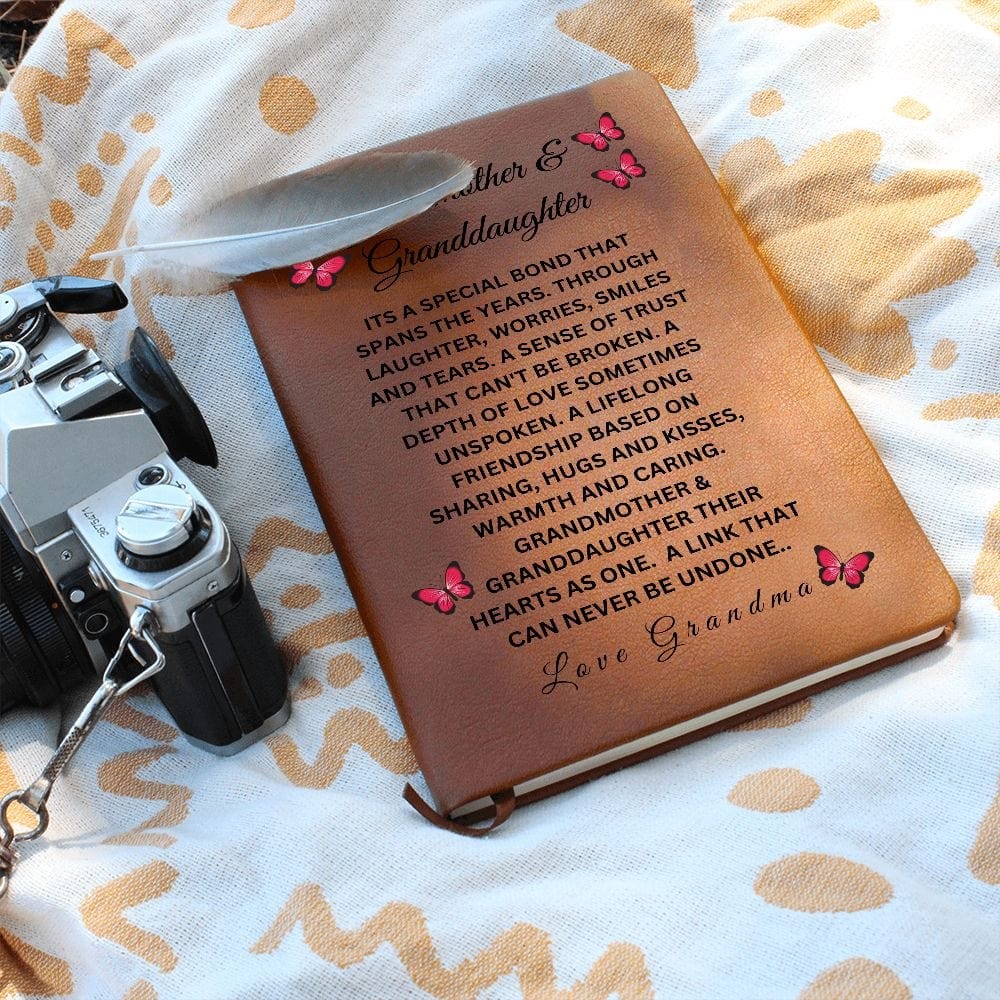 mother &
Granddaughter
ITS A SPECIAL BOND THAT
SPANS THE YEARS. THROUGH
LAUGHTER, WORRIES, SMILES
AND TEARS. A SENSE OF TRUST
THAT CAN'T BE BROKEN. A
DEPTH OF LOVE SOMETIMES
UNSPOKEN. A LIFELONG
FRIENDSHIP BASED ON
SHARING, HUGS AND KISSES,
WARMTH AND CARING.
GRANDMOTHER &
GRANDDAUGHTER THEIR
HEARTS AS ONE. A LINK THAT
CAN NEVER BE UNDONE..
Love Grandma
3675471